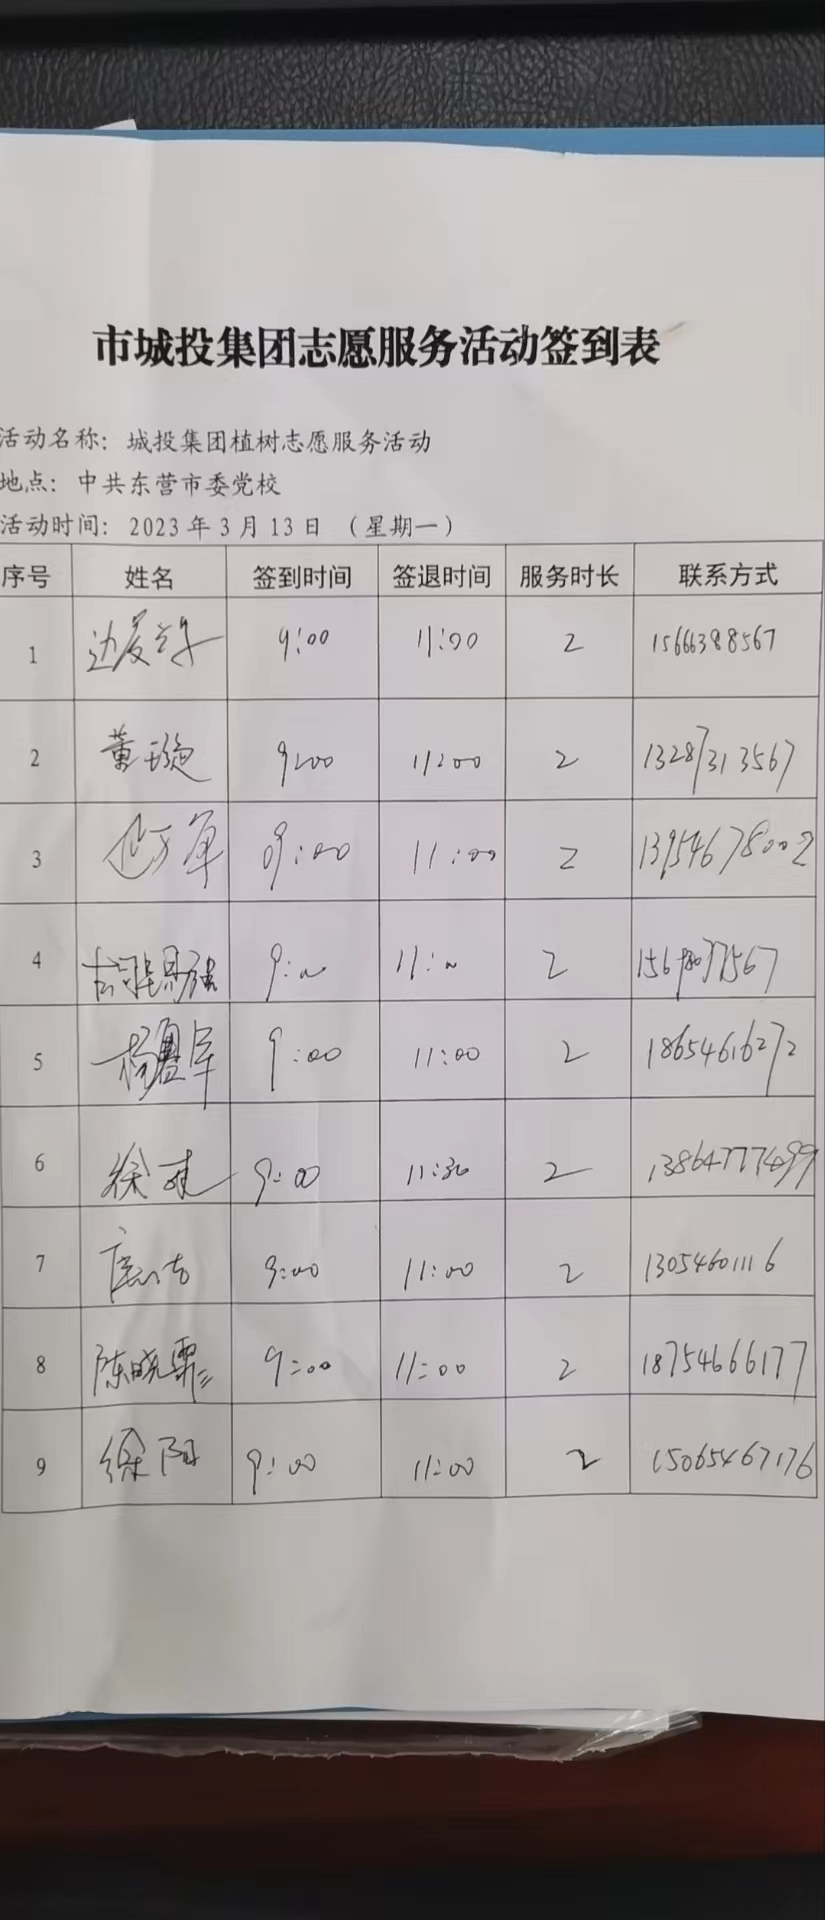 市城投集团志愿服务活动签到表
活动名称：城投集团植树志愿服务活动
地点：中共东营市委党校
活动时间：2023年3月13日（星期一）
序号 姓名 签到时间 签退时间 服务时长 联系方式
1 9:00 11:00 2 15666388567
2 董璇 9:00 11:00 2 13287313567
3 09:00 11:00 2 13954678002
4 9: 11: 2
5 9:00 11:00 2 18654616272
6 徐 9:00 11:30 2
7 9:00 11:00 2 13054601116
8 陈晓霏 9:00 11:00 2 18754666177
9 徐阳 9:00 11:00 2 15065467176